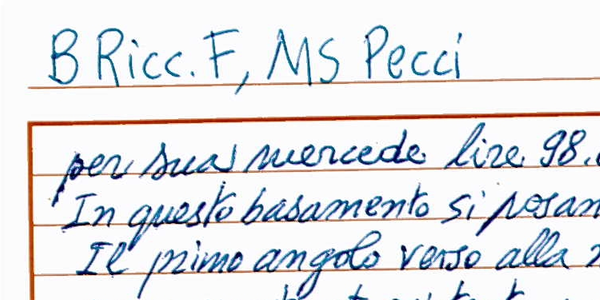 B Ricc. F, MS Pecci
per sua mercede lire 98.
In questo basamento si posan
Il primo angolo verso alla